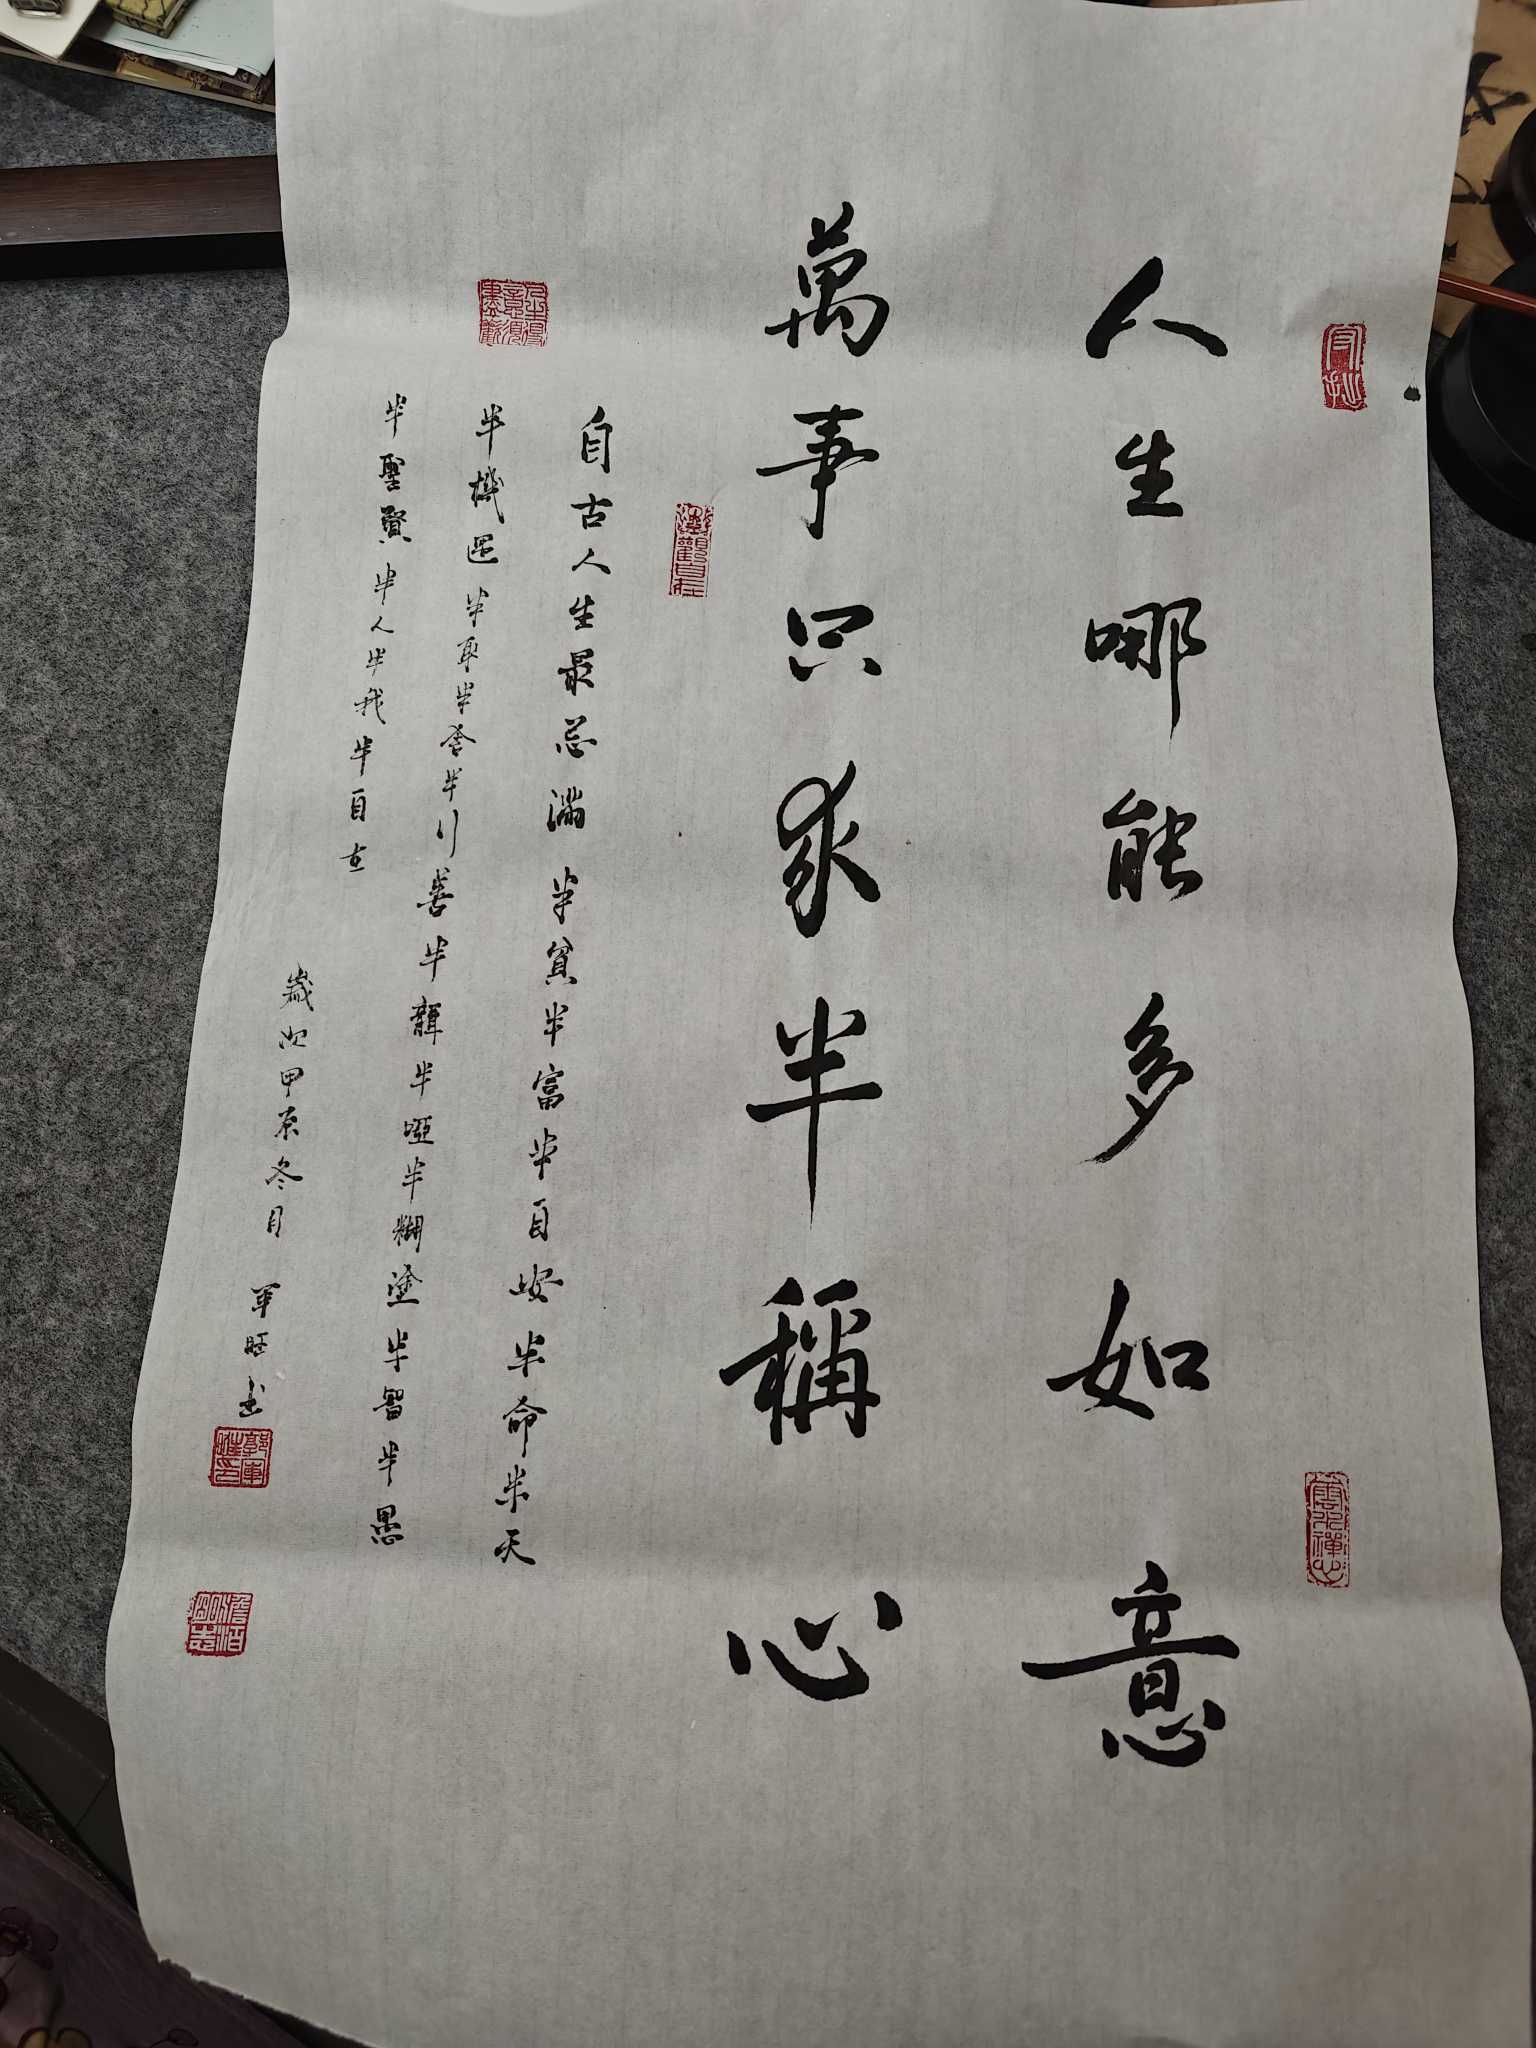 人生哪能多如意
萬事只求半稱心
自古人生最忌滿半貧半富半自安半命半天
半機遇半取半舍半行善半聾半啞半糊塗半智半愚
半聖賢半人半我半自在
歲次甲辰冬月 軍旺書
守拙
雲水禪心
澹泊明志